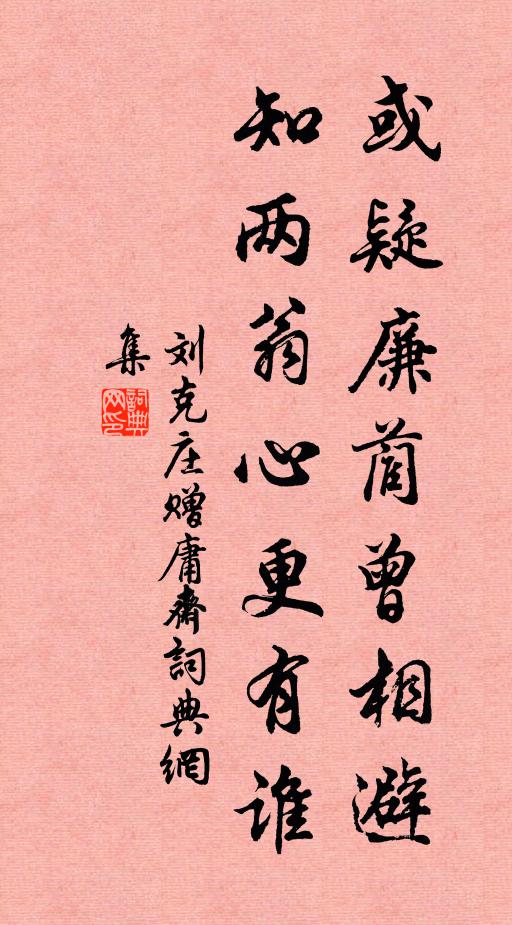 或疑廉蔺曾相避
知两翁心更有谁
刘克庄赠庸斋詞典網
集
詞典网印